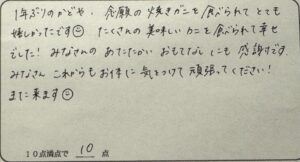 1年ぶりのかどや、念願の焼きガニを食べられてとても
嬉しかったです☺ たくさんの美味しいカニを食べられて幸せ
でした! みなさんのあたたかいおもてなしにも感謝です。
みなさん これからもお体に気をつけて頑張ってください!
また来ます☺
10点満点で 10 点